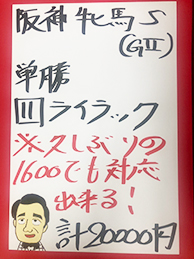 阪神牝馬S
(GⅡ)
単勝
⑪ライラック
※久しぶりの
1600でも対応
出来る!
計20000円